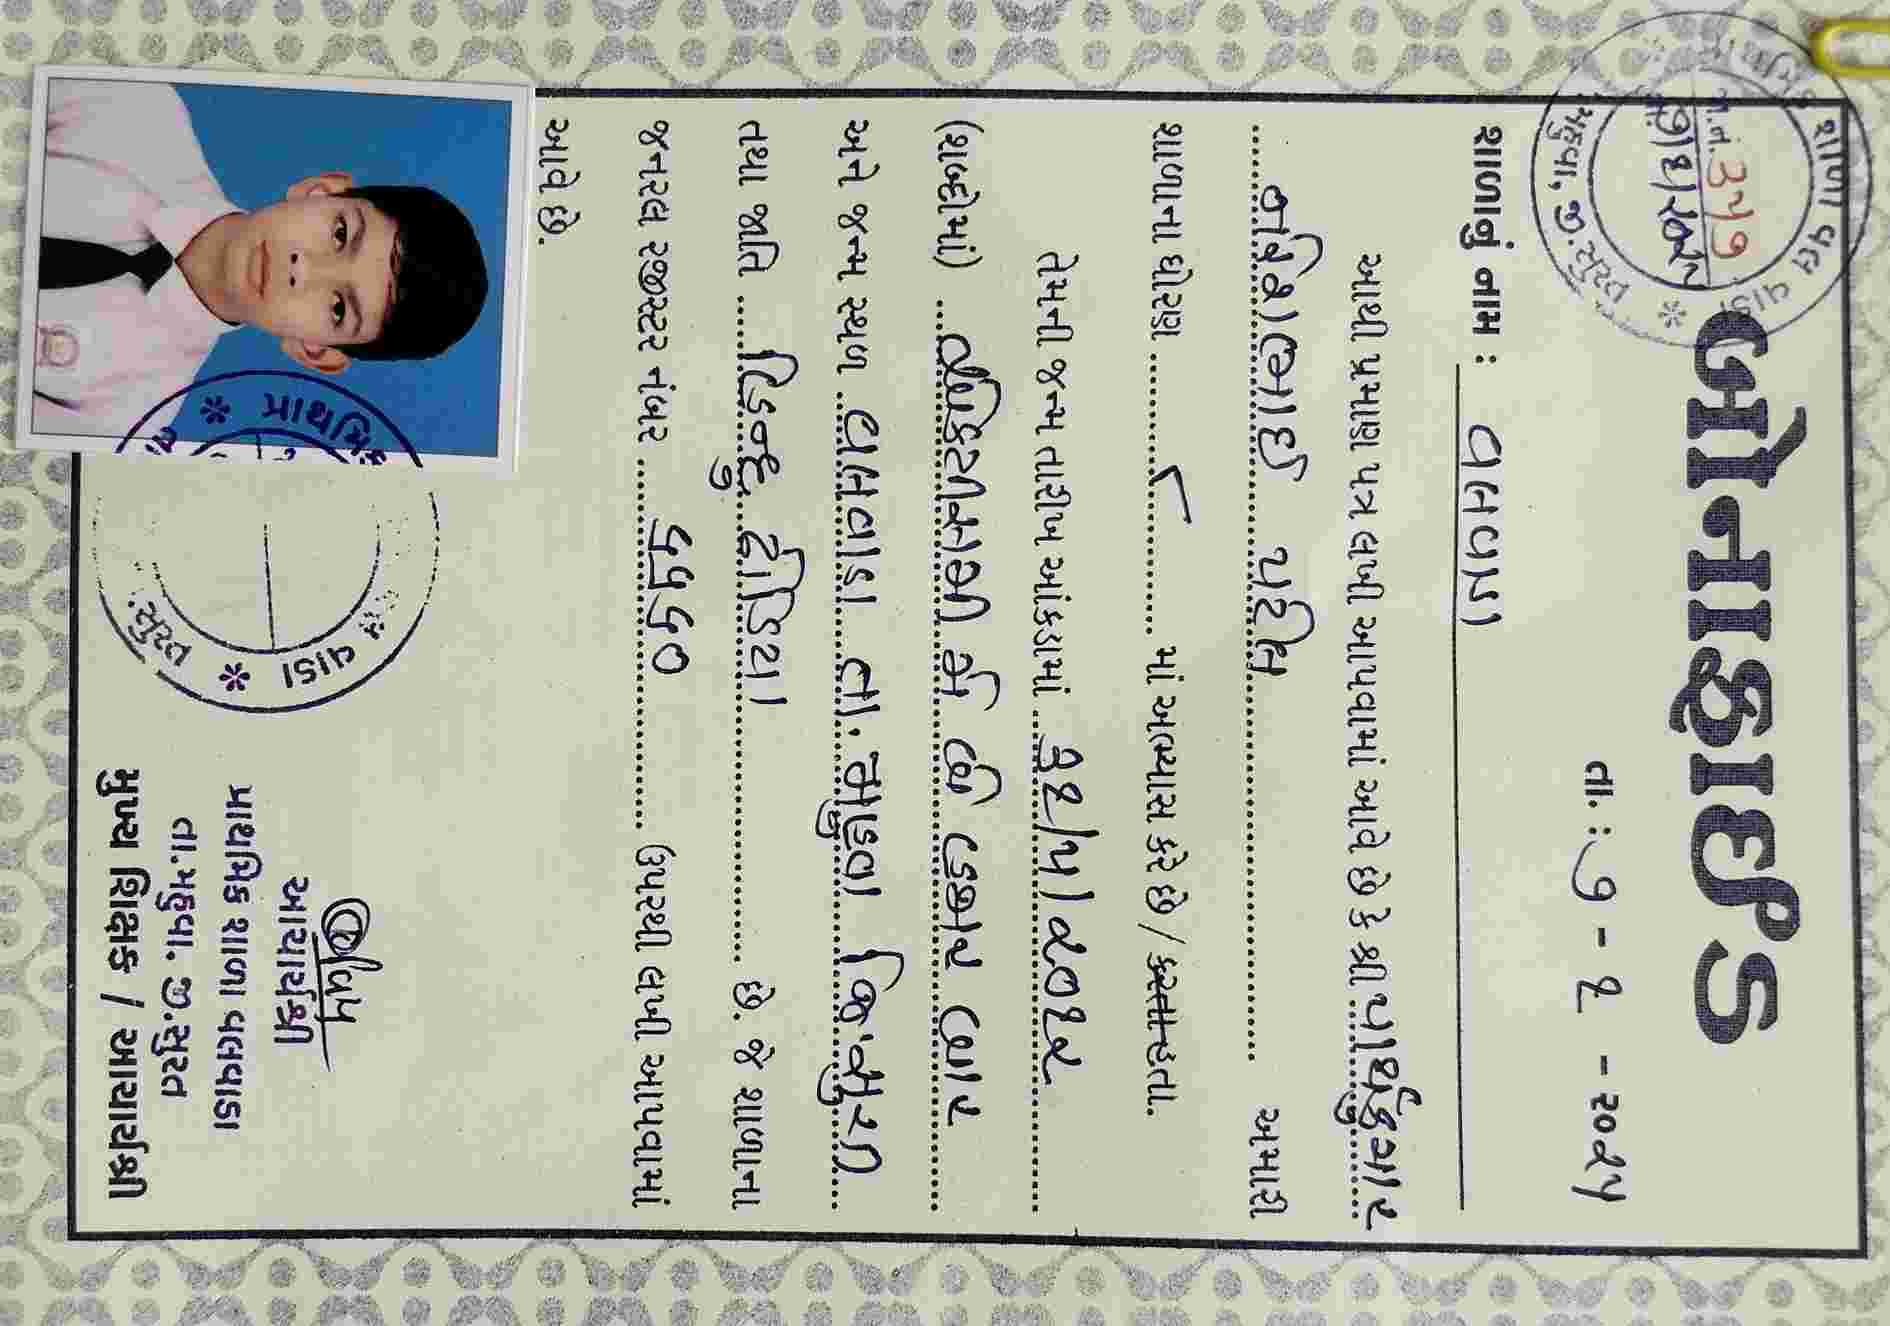 બોનાફાઈડ
તા.: ૧ - ૨ - ૨૦૨૫
શાળાનું નામ : વલવાડા
આથી પ્રમાણ પત્ર લખી આપવામાં આવે છે કે શ્રી પાર્થકુમાર
પટેલ અમારી
શાળાના ધોરણ ૮ માં અભ્યાસ કરે છે / કરતા હતા.
તેમની જન્મ તારીખ આંકડામાં /૫/૨૦૧૨
(શબ્દોમાં) મે બે હજાર બાર
અને જન્મ સ્થળ વલવાડા તા. મહુવા જિ.સુરત
તથા જાતિ હિન્દુ ઢોડિયા છે. જે શાળાના
જનરલ રજીસ્ટર નંબર ૫૫૬૦ ઉપરથી લખી આપવામાં
આવે છે.
આચાર્યશ્રી
પ્રાથમિક શાળા વલવાડા
તા.મહુવા. જી.સુરત
મુખ્ય શિક્ષક / આચાર્યશ્રી
શાળા વલવાડા
જા.નં. ૩૫૧
મહુવા, જી. સુરત